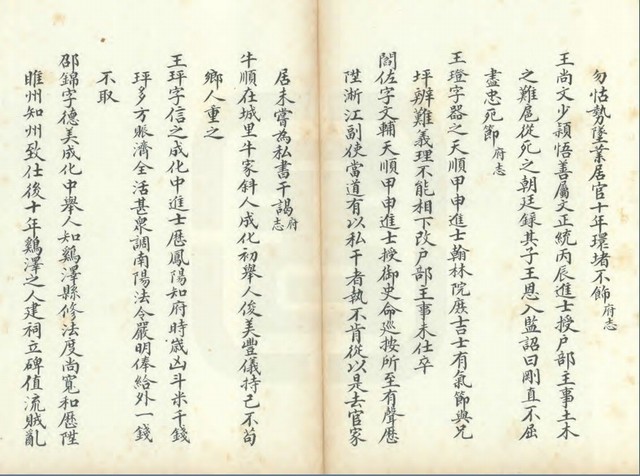 勿怙勢墜業居官十年環堵不飾府志
王尚文少穎悟善屬文正統丙辰進士授户部主事土木
之難扈從死之朝廷錄其子王恩入監詔曰剛直不屈
盡忠死節府志
王璒字器之天順甲申進士翰林院庶吉士有氣節與兄
坪辨難義理不能相下改户部主事未仕卒
閻佐字文輔天順甲申進士授御史命巡按所至有聲歷
陞浙江副使當道有以私干者執不肯從以是去官家
居未嘗為私書干謁府志
牛順在城里牛家斜人成化初舉人俊美豐儀持己不苟
鄉人重之
王坪字信之成化中進士歷鳳陽知府時歲凶斗米千錢
坪多方賑濟全活甚衆調南陽法令嚴明俸給外一錢
不取
邵錦字德美成化中舉人知鷄澤縣修法度尚寬和歷陞
睢州知州致仕後十年鷄澤之人建祠立碑值流賊亂